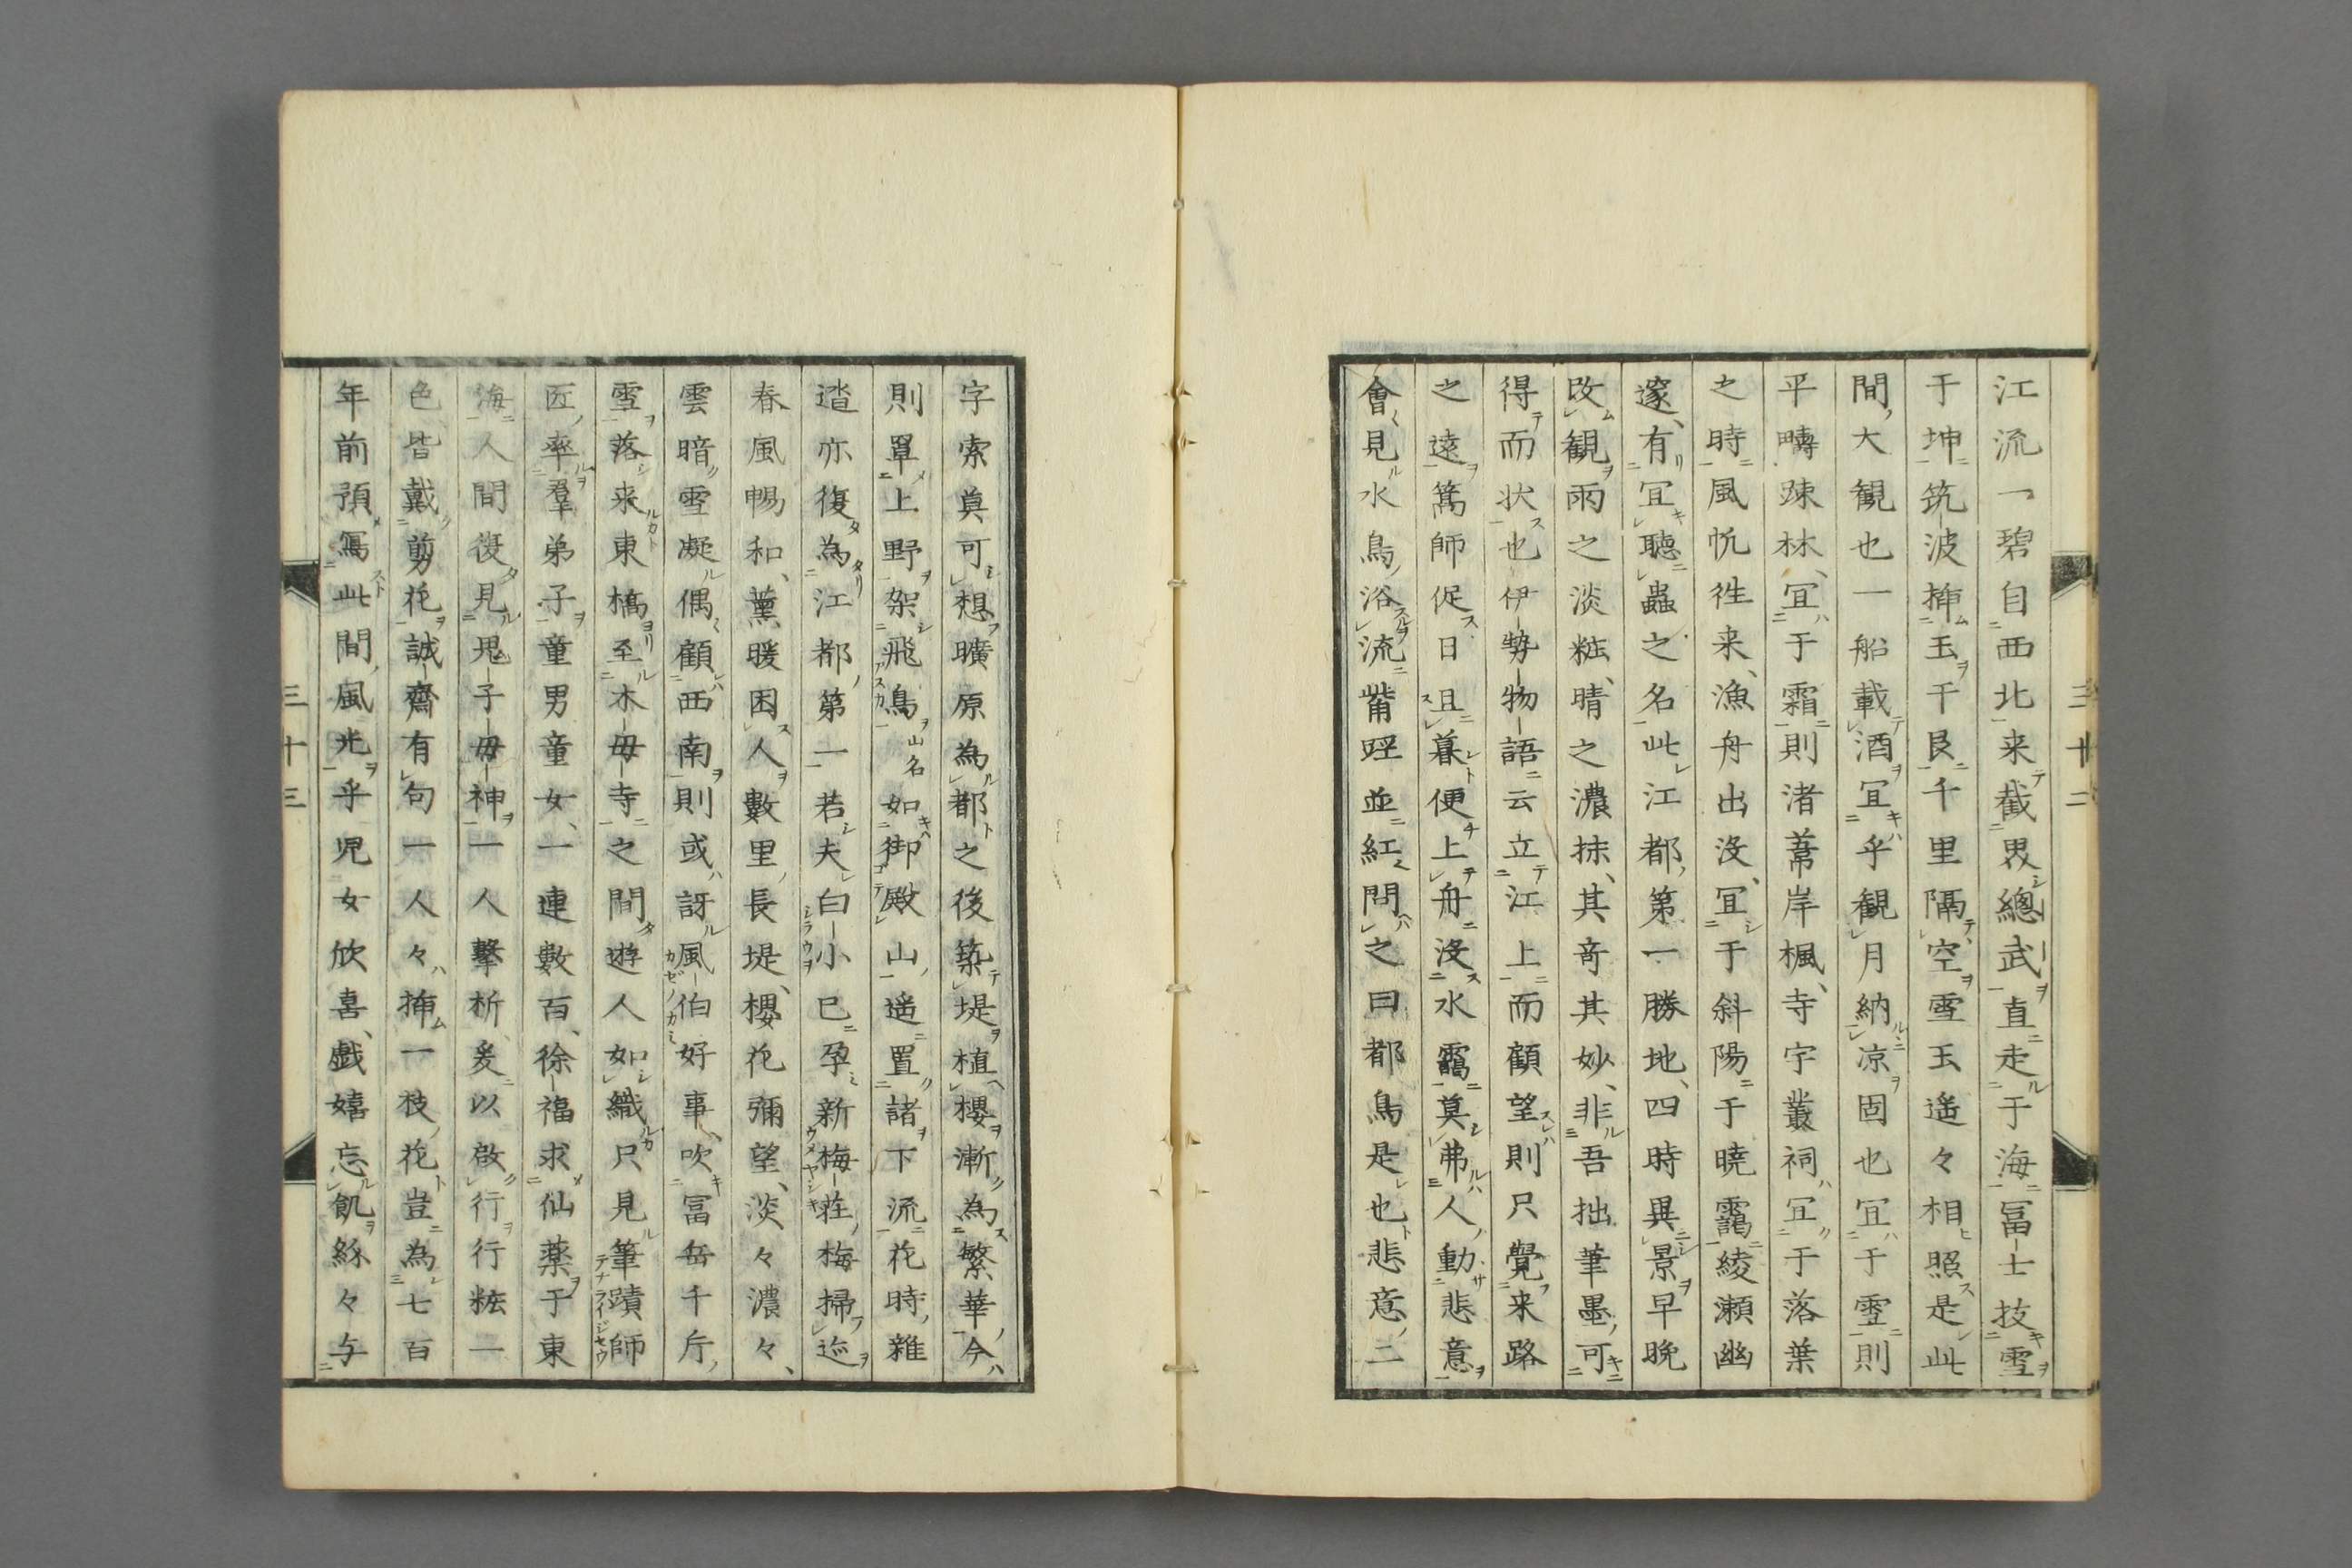 江流一碧自西北来截界總武直走于海冨士技雪
于坤筑波挿玉于艮千里隔空雪玉遙々相照是此
間大観也一船載酒冝乎観月納凉固也冝于雪則
平疇踈林冝于霜則渚葦岸楓寺宇叢祠冝于落葉
之時風帆徃来漁舟出没冝于斜陽于暁靄綾瀬幽
邃有冝聴蟲之名此江都第一勝地四時異景早晩
改観雨之淡粧晴之濃抹其竒其妙非吾拙筆墨可
得而状也伊勢物語云立江上而顧望則只覺来路
之遠篙師促日且暮便上舟没水靄莫弗人動悲意
會見水鳥浴流觜脛並紅問之曰都鳥是也悲意二
三十二
字索莫可想曠原為都之後築堤植櫻漸為繁華今
則單上野架飛鳥山名如御殿山遥置諸下流花時雜
遝亦復為江都第一若夫白小已孕新梅荘梅掃迹
春風暢和薫暖困人數里長堤櫻花彌望淡々濃々
雲暗雪凝偶顧西南則或訝風伯好事吹冨岳千斤
雪落来東橋至木母寺之間遊人如織只見筆蹟師
匠率羣弟子童男童女一連數百徐福求仙薬于東
海人間復見鬼子母神一人撃柝爰以啓行行粧一
色皆戴剪花誠齋有句一人々挿一枝花豈為七百
年前預冩此間風光乎児女欣喜戯嬉忘飢絲々与
三十三